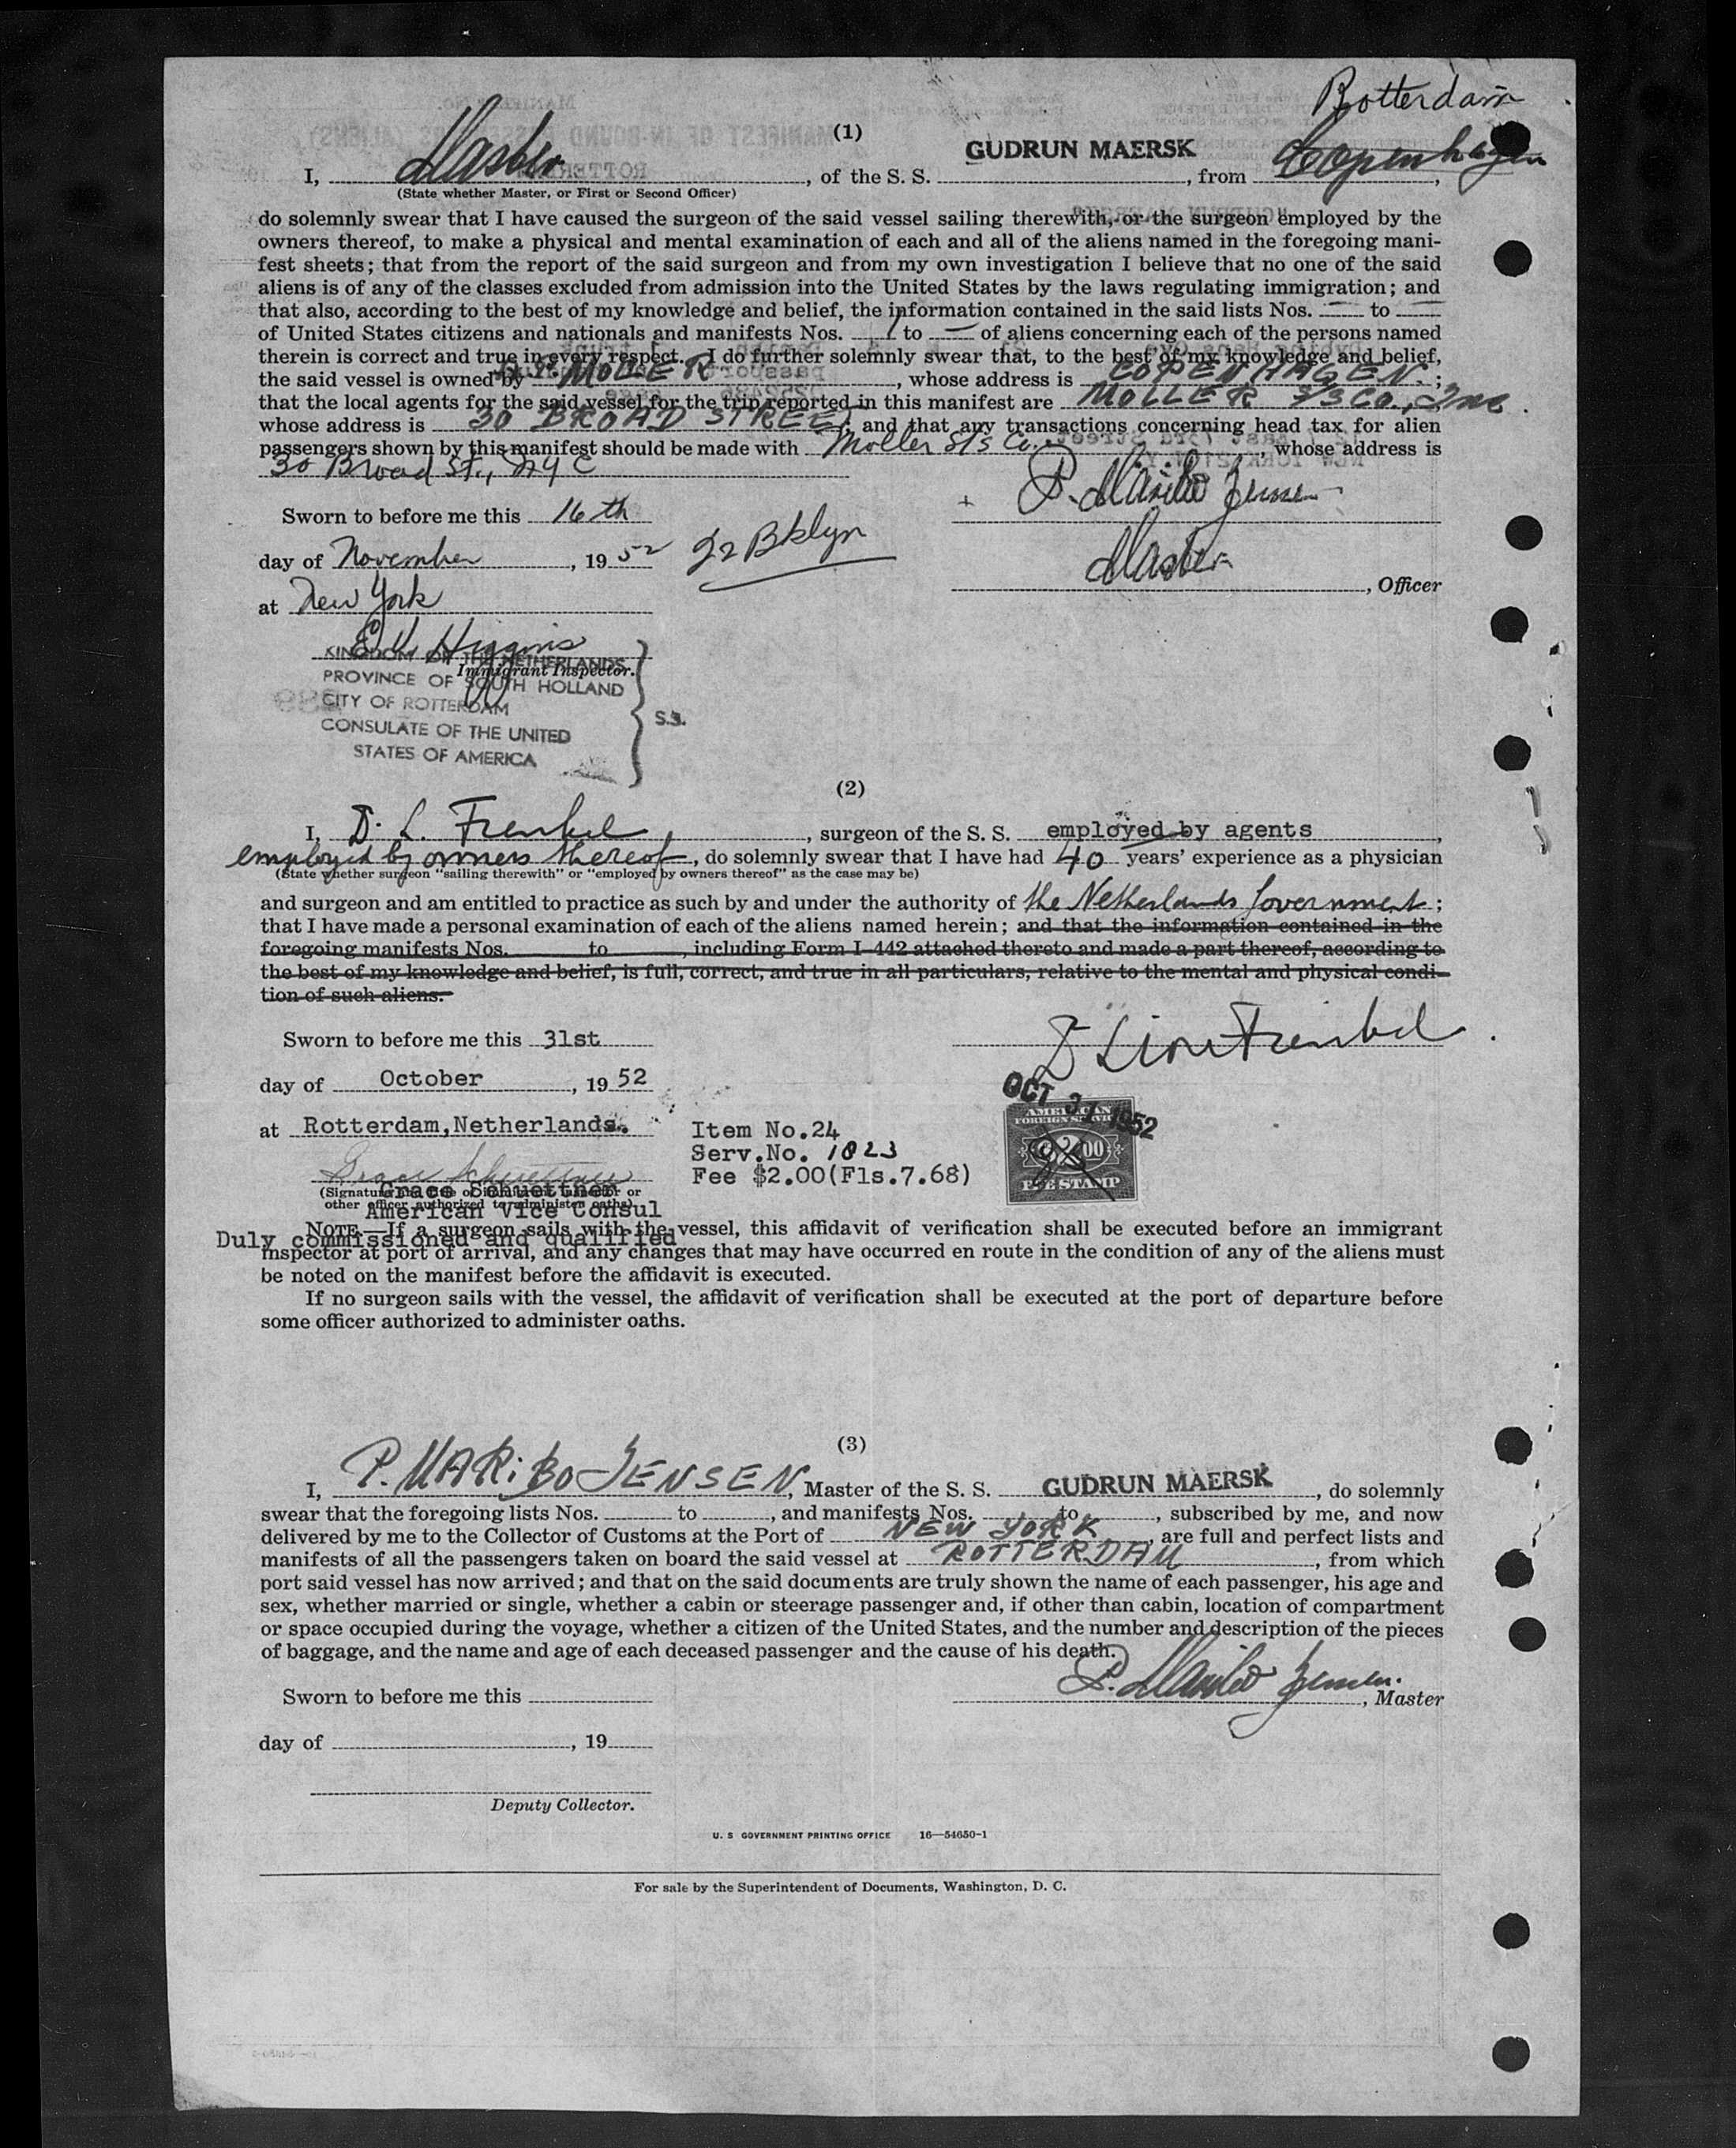 Rotterdam
(1)
I, Master, of the S. S. GUDRUN MAERSK, from Copenhagen,
(State whether Master, or First or Second Officer)
do solemnly swear that I have caused the surgeon of the said vessel sailing therewith, or the surgeon employed by the
owners thereof, to make a physical and mental examination of each and all of the aliens named in the foregoing mani-
fest sheets; that from the report of the said surgeon and from my own investigation I believe that no one of the said
aliens is of any of the classes excluded from admission into the United States by the laws regulating immigration; and
that also, according to the best of my knowledge and belief, the information contained in the said lists Nos. — to —
of United States citizens and nationals and manifests Nos. 1 to — of aliens concerning each of the persons named
therein is correct and true in every respect. I do further solemnly swear that, to the best of my knowledge and belief,
the said vessel is owned by MOLLER, whose address is COPENHAGEN.;
that the local agents for the said vessel for the trip reported in this manifest are MOLLER S/S CO., Inc.
whose address is 30 BROAD STREET, and that any transactions concerning head tax for alien
passengers shown by this manifest should be made with Moller S/s Co., whose address is
30 Broad St., NYC
P. Maribo Jensen
Sworn to before me this 16th
day of November, 1952 22 Bklyn
Master, Officer
at New York
E. V. Higgins
Immigrant Inspector.
KINGDOM OF THE NETHERLANDS
PROVINCE OF SOUTH HOLLAND
CITY OF ROTTERDAM
CONSULATE OF THE UNITED
STATES OF AMERICA
S.S.
(2)
I, D. L. Frenkel, surgeon of the S. S. employed by agents,
employed by owners thereof, do solemnly swear that I have had 40 years' experience as a physician
(State whether surgeon "sailing therewith" or "employed by owners thereof" as the case may be)
and surgeon and am entitled to practice as such by and under the authority of the Netherlands Government;
that I have made a personal examination of each of the aliens named herein; and that the information contained in the
foregoing manifests Nos. to , including Form I-442 attached thereto and made a part thereof, according to
the best of my knowledge and belief, is full, correct, and true in all particulars, relative to the mental and physical condi-
tion of such aliens.
Sworn to before me this 31st
day of October, 1952
OCT 31 1952
at Rotterdam,Netherlands.
Item No.24
Serv.No. 1023
Fee $2.00(Fls.7.68)
AMERICAN
FOREIGN SERVICE
$2.00
FEE STAMP
(Signature and title of immigrant inspector or
other officer authorized to administer oaths)
Grace Schuettner
American Vice Consul
Duly commissioned and qualified
NOTE.—If a surgeon sails with the vessel, this affidavit of verification shall be executed before an immigrant
inspector at port of arrival, and any changes that may have occurred en route in the condition of any of the aliens must
be noted on the manifest before the affidavit is executed.
If no surgeon sails with the vessel, the affidavit of verification shall be executed at the port of departure before
some officer authorized to administer oaths.
(3)
I, P. MARIBO JENSEN, Master of the S. S. GUDRUN MAERSK, do solemnly
swear that the foregoing lists Nos. to , and manifests Nos. to , subscribed by me, and now
delivered by me to the Collector of Customs at the Port of NEW YORK, are full and perfect lists and
manifests of all the passengers taken on board the said vessel at ROTTERDAM, from which
port said vessel has now arrived; and that on the said documents are truly shown the name of each passenger, his age and
sex, whether married or single, whether a cabin or steerage passenger and, if other than cabin, location of compartment
or space occupied during the voyage, whether a citizen of the United States, and the number and description of the pieces
of baggage, and the name and age of each deceased passenger and the cause of his death.
Sworn to before me this
P. Maribo Jensen, Master
day of , 19
Deputy Collector.
U. S GOVERNMENT PRINTING OFFICE 16—54650-1
For sale by the Superintendent of Documents, Washington, D. C.